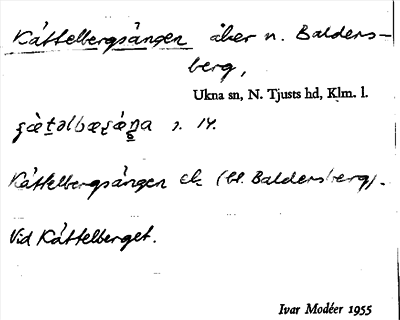 Kåttelbergsängen åker n. Balders-
berg,
Ukna sn, N. Tjusts hd, Klm. l.
s. 14.
Kåttelbergsängen ek (bl. Baldersberg).
Vid Kåttelberget.
Ivar Modéer 1955